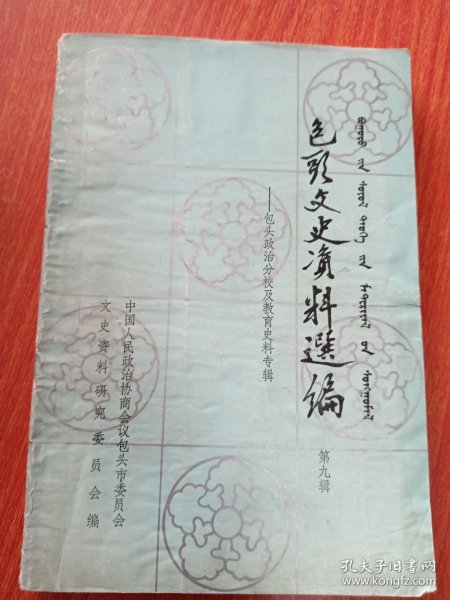 包头文史资料選编
第九辑
——包头政治分校及教育史料专辑
中国人民政治协商会议包头市委员会
文史资料研究委员会编
孔夫子旧书网
www.kongfz.com